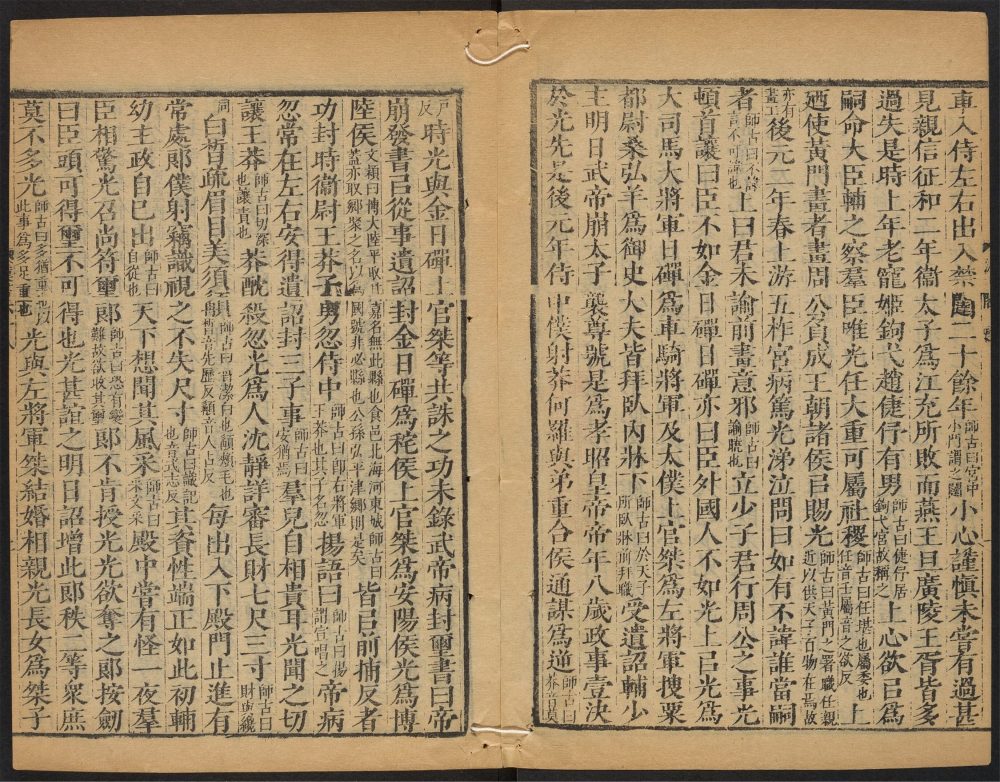 車入侍左右出入禁闥二十餘年師古曰宮中小門謂之闥小心謹慎未嘗有過甚
見親信征和二年衞太子爲江充所敗而燕王旦廣陵王胥皆多
過失是時上年老寵姬鉤弋趙倢伃有男師古曰倢伃居鉤弋宮故稱之上心欲㠯爲
嗣命大臣輔之察羣臣唯光任大重可屬社稷師古曰任堪也屬委也任音壬屬音之欲反上
廼使黃門畫者畫周公負成王朝諸侯㠯賜光師古曰黃門之署職任親近以供天子百物在焉故
亦有畫工後元二年春上游五柞宮病篤光涕泣問曰如有不諱誰當嗣
者師古曰不諱言不可諱也上曰君未諭前畫意邪師古曰諭曉也立少子君行周公之事光
頓首讓曰臣不如金日磾日磾亦曰臣外國人不如光上㠯光爲
大司馬大將軍日磾爲車騎將軍及太僕上官桀爲左將軍搜粟
都尉桑弘羊爲御史大夫皆拜臥内牀下師古曰於天子所臥牀前拜職受遺詔輔少
主明日武帝崩太子襲尊號是爲孝昭皇帝帝年八歲政事壹決
於光先是後元年侍中僕射莽何羅與弟重合侯通謀爲逆師古曰莽音莫
戶反時光與金日磾上官桀等共誅之功未錄武帝病封璽書曰帝
崩發書㠯從事遺詔封金日磾爲秺侯上官桀爲安陽侯光爲博
陸侯文穎曰博大陸平取其嘉名無此縣也食邑北海河東城師古曰蓋亦取鄉聚之名以爲國號非必縣也公孫弘平津鄉則是矣皆㠯前捕反者
功封時衞尉王莽子男忽侍中師古曰即右將軍王莽也其子名忽揚語曰師古曰揚謂宣唱之帝病
忽常在左右安得遺詔封三子事師古曰安猶焉羣兒自相貴耳光聞之切
讓王莽師古曰切深也讓責也莽酖殺忽光爲人沈靜詳審長財七尺三寸師古曰財與纔
同白皙疏眉目美須䫇師古曰皙潔白也䫇頰毛也皙音先歷反䫇音人占反每出入下殿門止進有
常處郎僕射竊識視之不失尺寸師古曰識記也音式志反其資性端正如此初輔
幼主政自己出師古曰自從也天下想聞其風采師古曰采文采殿中嘗有怪一夜羣
臣相驚光召尚符璽郎師古曰恐有變難故欲收其璽郎不肯授光光欲奪之郎按劒
曰臣頭可得璽不可得也光甚誼之明日詔增此郎秩二等衆庶
莫不多光師古曰多猶重也以此事爲多足重也光與左將軍桀結婚相親光長女爲桀子